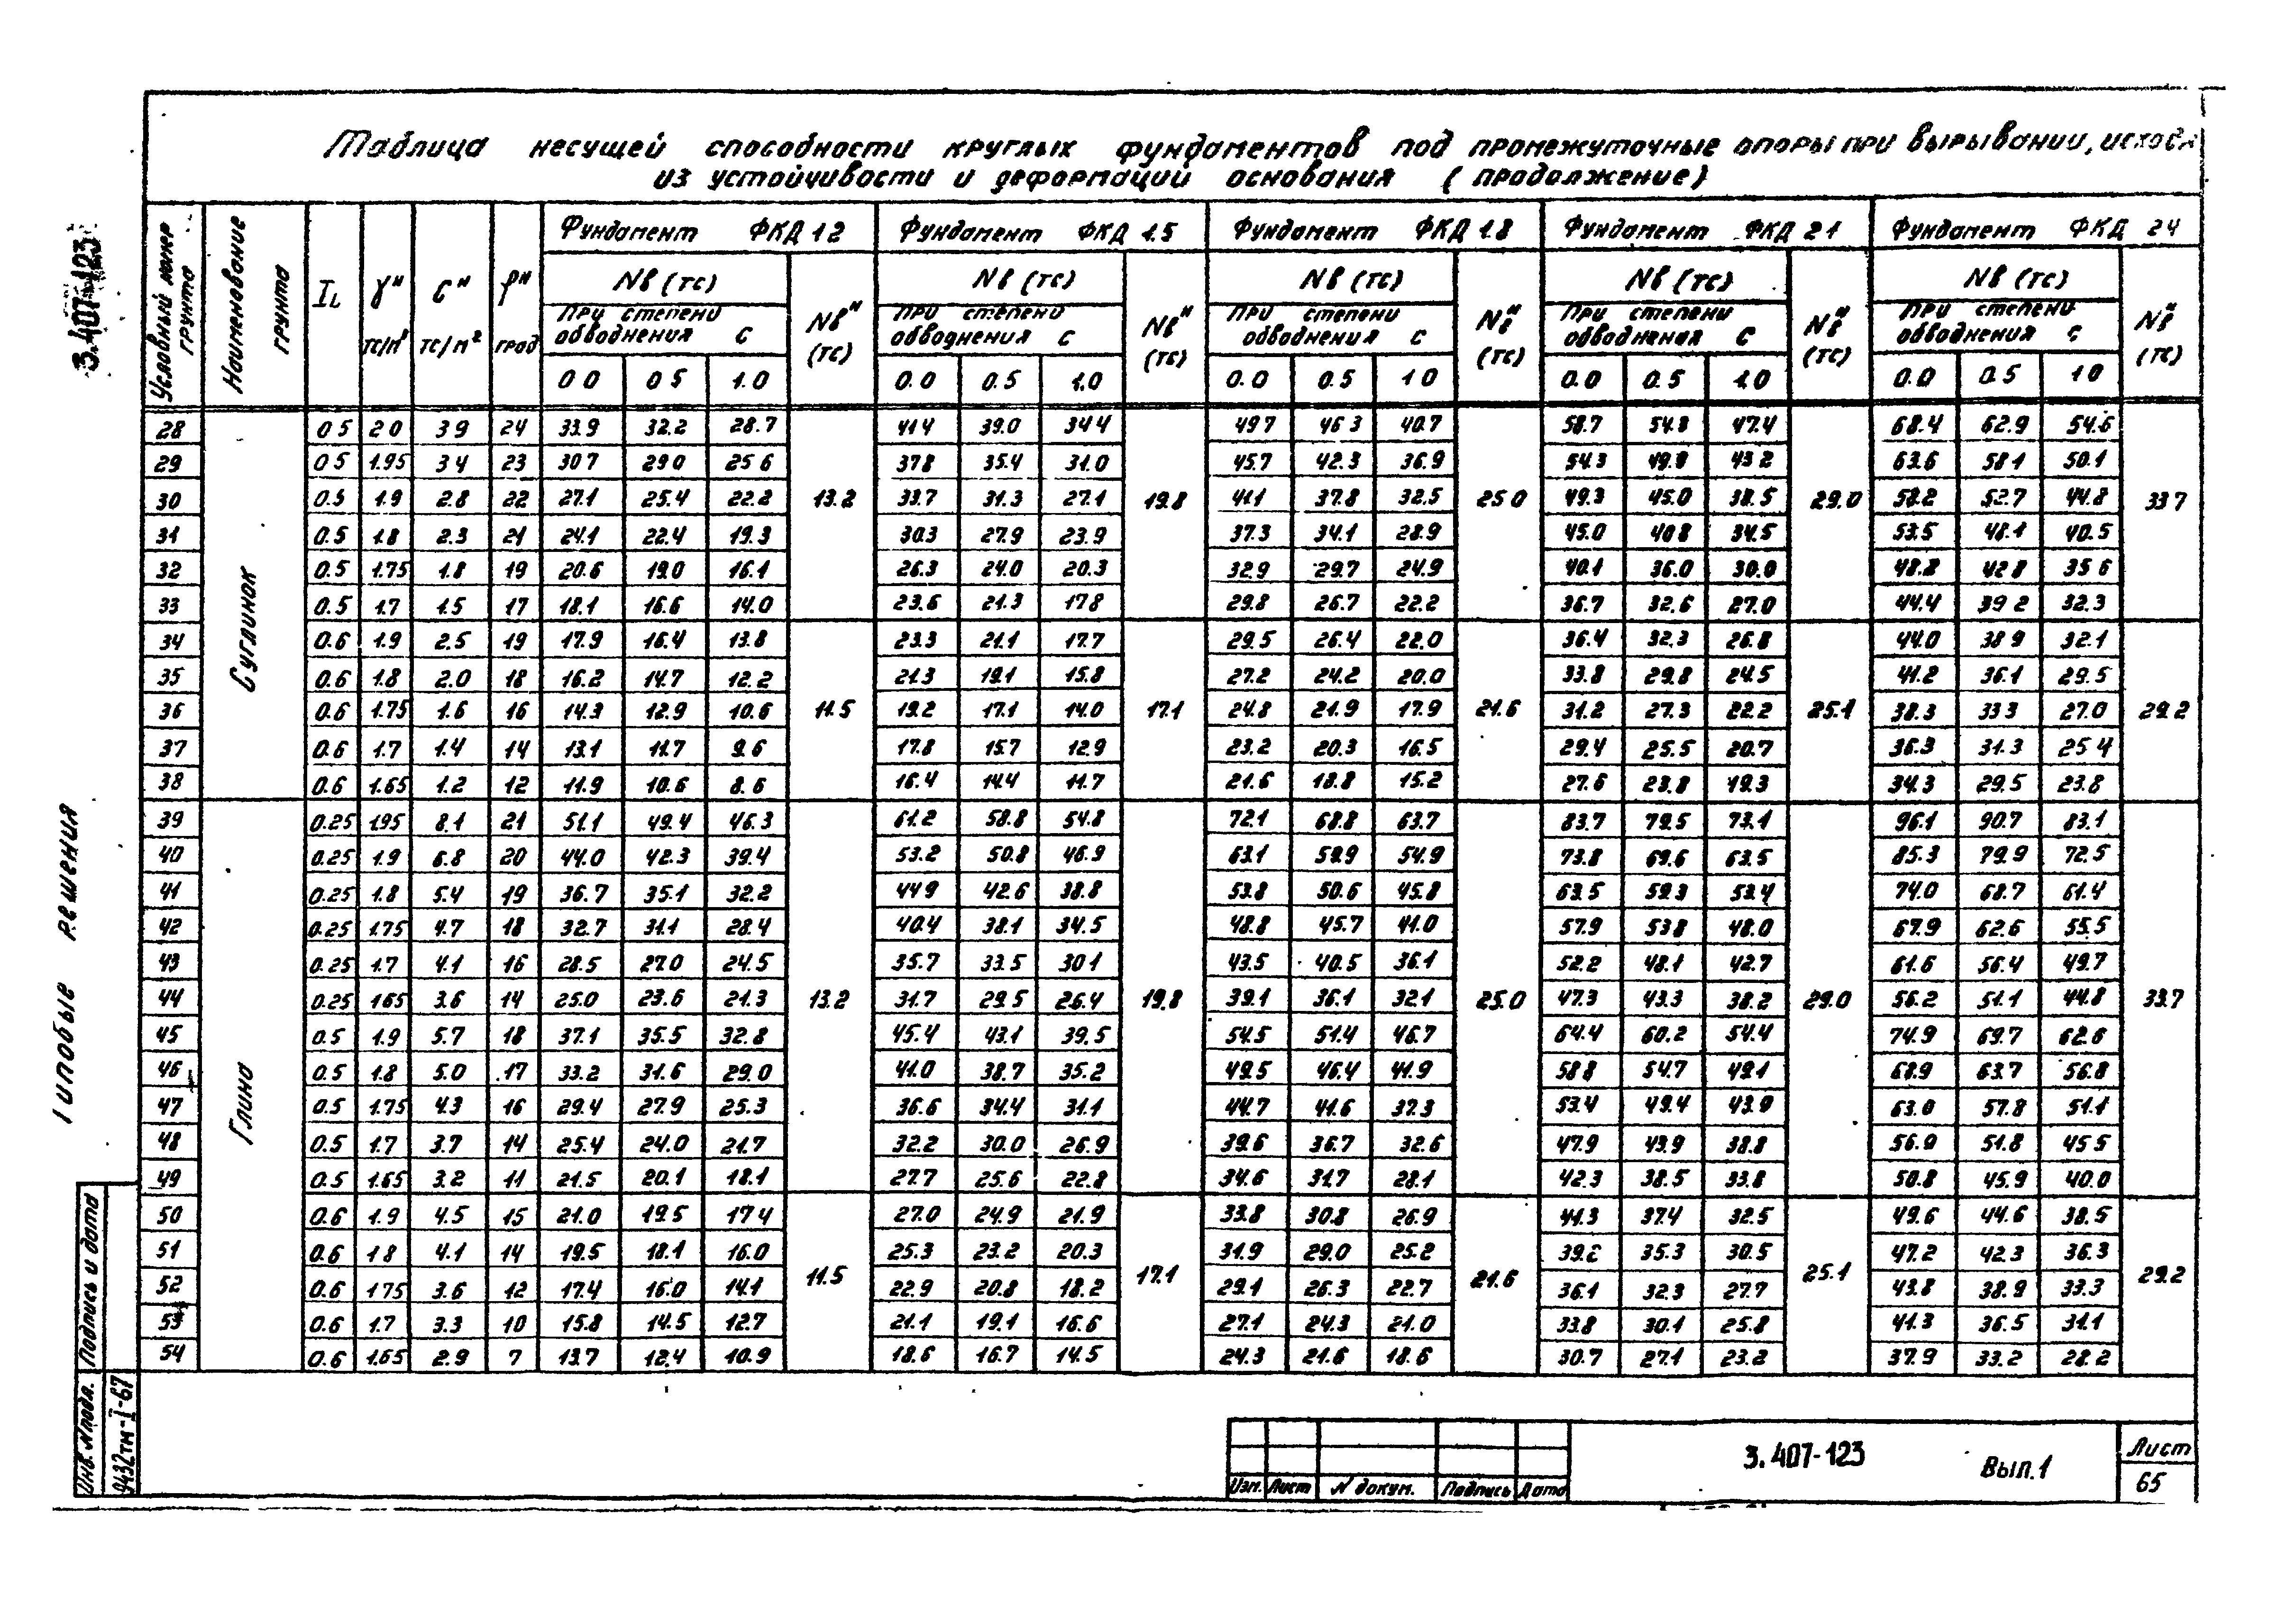 Таблица несущей способности круглых фундаментов под промежуточные опоры при вырывании, исходя
из устойчивости и деформаций основания (продолжение)
3.407-123
Типовые решения
Условный номер грунта
Наименование грунта
I_L
γᴴ тс/м³
Cᴴ тс/м²
φᴴ град
Фундамент ФКД 1.2
Фундамент ФКД 1.5
Фундамент ФКД 1.8
Фундамент ФКД 2.1
Фундамент ФКД 2.4
Nв (тс) Nвᴴ (тс) Nв (тс) Nвᴴ (тс) Nв (тс) Nвᴴ (тс) Nв (тс) Nвᴴ (тс) Nв (тс) Nвᴴ (тс)
При степени обводнения C При степени обводнения C При степени обводнения C При степени обводнения C При степени обводнения C
0.0 0.5 1.0 0.0 0.5 1.0 0.0 0.5 1.0 0.0 0.5 1.0 0.0 0.5 1.0
Суглинок
28 0.5 2.0 3.9 24 33.9 32.2 28.7 41.4 39.0 34.4 49.7 46.3 40.7 58.7 54.8 47.4 68.4 62.9 54.6
29 0.5 1.95 3.4 23 30.7 29.0 25.6 37.8 35.4 31.0 45.7 42.3 36.9 54.3 49.8 43.2 63.6 58.1 50.1
30 0.5 1.9 2.8 22 27.1 25.4 22.2 13.2 33.7 31.3 27.1 19.8 41.1 37.8 32.5 25.0 49.3 45.0 38.5 29.0 58.2 52.7 44.8 33.7
31 0.5 1.8 2.3 21 24.1 22.4 19.3 30.3 27.9 23.9 37.3 34.1 28.9 45.0 40.8 34.5 53.5 48.1 40.5
32 0.5 1.75 1.8 19 20.6 19.0 16.1 26.3 24.0 20.3 32.9 29.7 24.9 40.1 36.0 30.0 48.2 42.8 35.6
33 0.5 1.7 1.5 17 18.1 16.6 14.0 23.6 21.3 17.8 29.8 26.7 22.2 36.7 32.6 27.0 44.4 39.2 32.3
34 0.6 1.9 2.5 19 17.9 16.4 13.8 23.3 21.1 17.7 29.5 26.4 22.0 36.4 32.3 26.8 44.0 38.9 32.1
35 0.6 1.8 2.0 18 16.2 14.7 12.2 21.3 19.1 15.8 27.2 24.2 20.0 33.8 29.8 24.5 41.2 36.1 29.5
36 0.6 1.75 1.6 16 14.3 12.9 10.6 11.5 19.2 17.1 14.0 17.1 24.8 21.9 17.9 21.6 31.2 27.3 22.2 25.1 38.3 33.3 27.0 29.2
37 0.6 1.7 1.4 14 13.1 11.7 9.6 17.8 15.7 12.9 23.2 20.3 16.5 29.4 25.5 20.7 36.3 31.3 25.4
38 0.6 1.65 1.2 12 11.9 10.6 8.6 16.4 14.4 11.7 21.6 18.8 15.2 27.6 23.8 19.3 34.3 29.5 23.8
Глина
39 0.25 1.95 8.1 21 51.1 49.4 46.3 61.2 58.8 54.8 72.1 68.8 63.7 83.7 79.5 73.1 96.1 90.7 83.1
40 0.25 1.9 6.8 20 44.0 42.3 39.4 53.2 50.8 46.9 63.1 59.9 54.9 73.8 69.6 63.5 85.3 79.9 72.5
41 0.25 1.8 5.4 19 36.7 35.1 32.2 44.9 42.6 38.8 53.8 50.6 45.8 63.5 59.3 53.4 74.0 68.7 61.4
42 0.25 1.75 4.7 18 32.7 31.1 28.4 40.4 38.1 34.5 48.8 45.7 41.0 57.9 53.8 48.0 67.9 62.6 55.5
43 0.25 1.7 4.1 16 28.5 27.0 24.5 35.7 33.5 30.1 43.5 40.5 36.1 52.2 48.1 42.7 61.6 56.4 49.7
44 0.25 1.65 3.6 14 25.0 23.6 21.3 13.2 31.7 29.5 26.4 19.8 39.1 36.1 32.1 25.0 47.3 43.3 38.2 29.0 56.2 51.1 44.8 33.7
45 0.5 1.9 5.7 18 37.1 35.5 32.8 45.4 43.1 39.5 54.5 51.4 46.7 64.4 60.2 54.4 74.9 69.7 62.6
46 0.5 1.8 5.0 17 33.2 31.6 29.0 41.0 38.7 35.2 49.5 46.4 41.9 58.8 54.7 49.1 68.9 63.7 56.8
47 0.5 1.75 4.3 16 29.4 27.9 25.3 36.6 34.4 31.1 44.7 41.6 37.3 53.4 49.4 43.9 63.0 57.8 51.1
48 0.5 1.7 3.7 14 25.4 24.0 21.7 32.2 30.0 26.9 39.6 36.7 32.6 47.9 43.9 38.8 56.9 51.8 45.5
49 0.5 1.65 3.2 11 21.5 20.1 18.1 27.7 25.6 22.8 34.6 31.7 28.1 42.3 38.5 33.8 50.8 45.9 40.0
50 0.6 1.9 4.5 15 21.0 19.5 17.4 27.0 24.9 21.9 33.8 30.8 26.9 41.3 37.4 32.5 49.6 44.6 38.5
51 0.6 1.8 4.1 14 19.5 18.1 16.0 25.3 23.2 20.3 31.9 29.0 25.2 39.2 35.3 30.5 47.2 42.3 36.3
52 0.6 1.75 3.6 12 17.4 16.0 14.1 11.5 22.9 20.8 18.2 17.1 29.1 26.3 22.7 21.6 36.1 32.3 27.7 25.1 43.8 38.9 33.3 29.2
53 0.6 1.7 3.3 10 15.8 14.5 12.7 21.1 19.1 16.6 27.1 24.3 21.0 33.8 30.1 25.8 41.3 36.5 31.1
54 0.6 1.65 2.9 7 13.7 12.4 10.9 18.6 16.7 14.5 24.3 21.6 18.6 30.7 27.1 23.2 37.9 33.2 28.2
Подпись и дата
Инв. N подл.
9432тм-I-67
Изм. Лист N докум. Подпись Дата
3.407-123 Вып.1
Лист
65